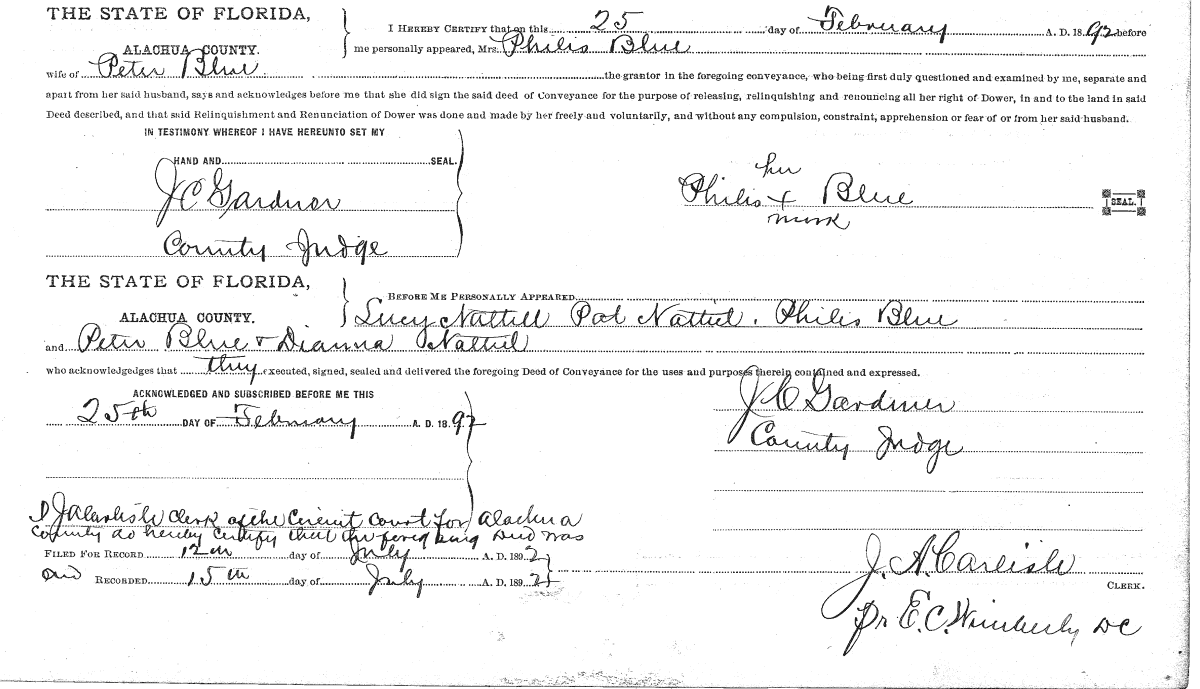 THE STATE OF FLORIDA,
ALACHUA COUNTY.
I HEREBY CERTIFY that on this 25 day of February A. D. 1892 before
me personally appeared, Mrs. Philis Blue
wife of Peter Blue the grantor in the foregoing conveyance, who being first duly questioned and examined by me, separate and
apart from her said husband, says and acknowledges before me that she did sign the said deed of Conveyance for the purpose of releasing, relinquishing and renouncing all her right of Dower, in and to the land in said
Deed described, and that said Relinquishment and Renunciation of Dower was done and made by her freely and voluntarily, and without any compulsion, constraint, apprehension or fear of or from her said husband.
IN TESTIMONY WHEREOF I HAVE HEREUNTO SET MY
HAND AND SEAL.
J C Gardner
County Judge
her
Philis + Blue
mark
SEAL.
THE STATE OF FLORIDA,
ALACHUA COUNTY.
BEFORE ME PERSONALLY APPEARED
Lucy Nattiell Pat Nattiel. Philis Blue
and Peter Blue & Dianna Nattiel
who acknowledges that they executed, signed, sealed and delivered the foregoing Deed of Conveyance for the uses and purposes therein contained and expressed.
ACKNOWLEDGED AND SUBSCRIBED BEFORE ME THIS
25th DAY OF February A. D. 1892
J C Gardner
County Judge
I J A Carlisle Clerk of the Circuit Court for Alachua
County do hereby certify that the foregoing Deed was
FILED FOR RECORD 12th day of July A. D. 1892
and RECORDED 15th day of July A. D. 1892
J. A. Carlisle
CLERK.
Pr E. C. Wimberly DC